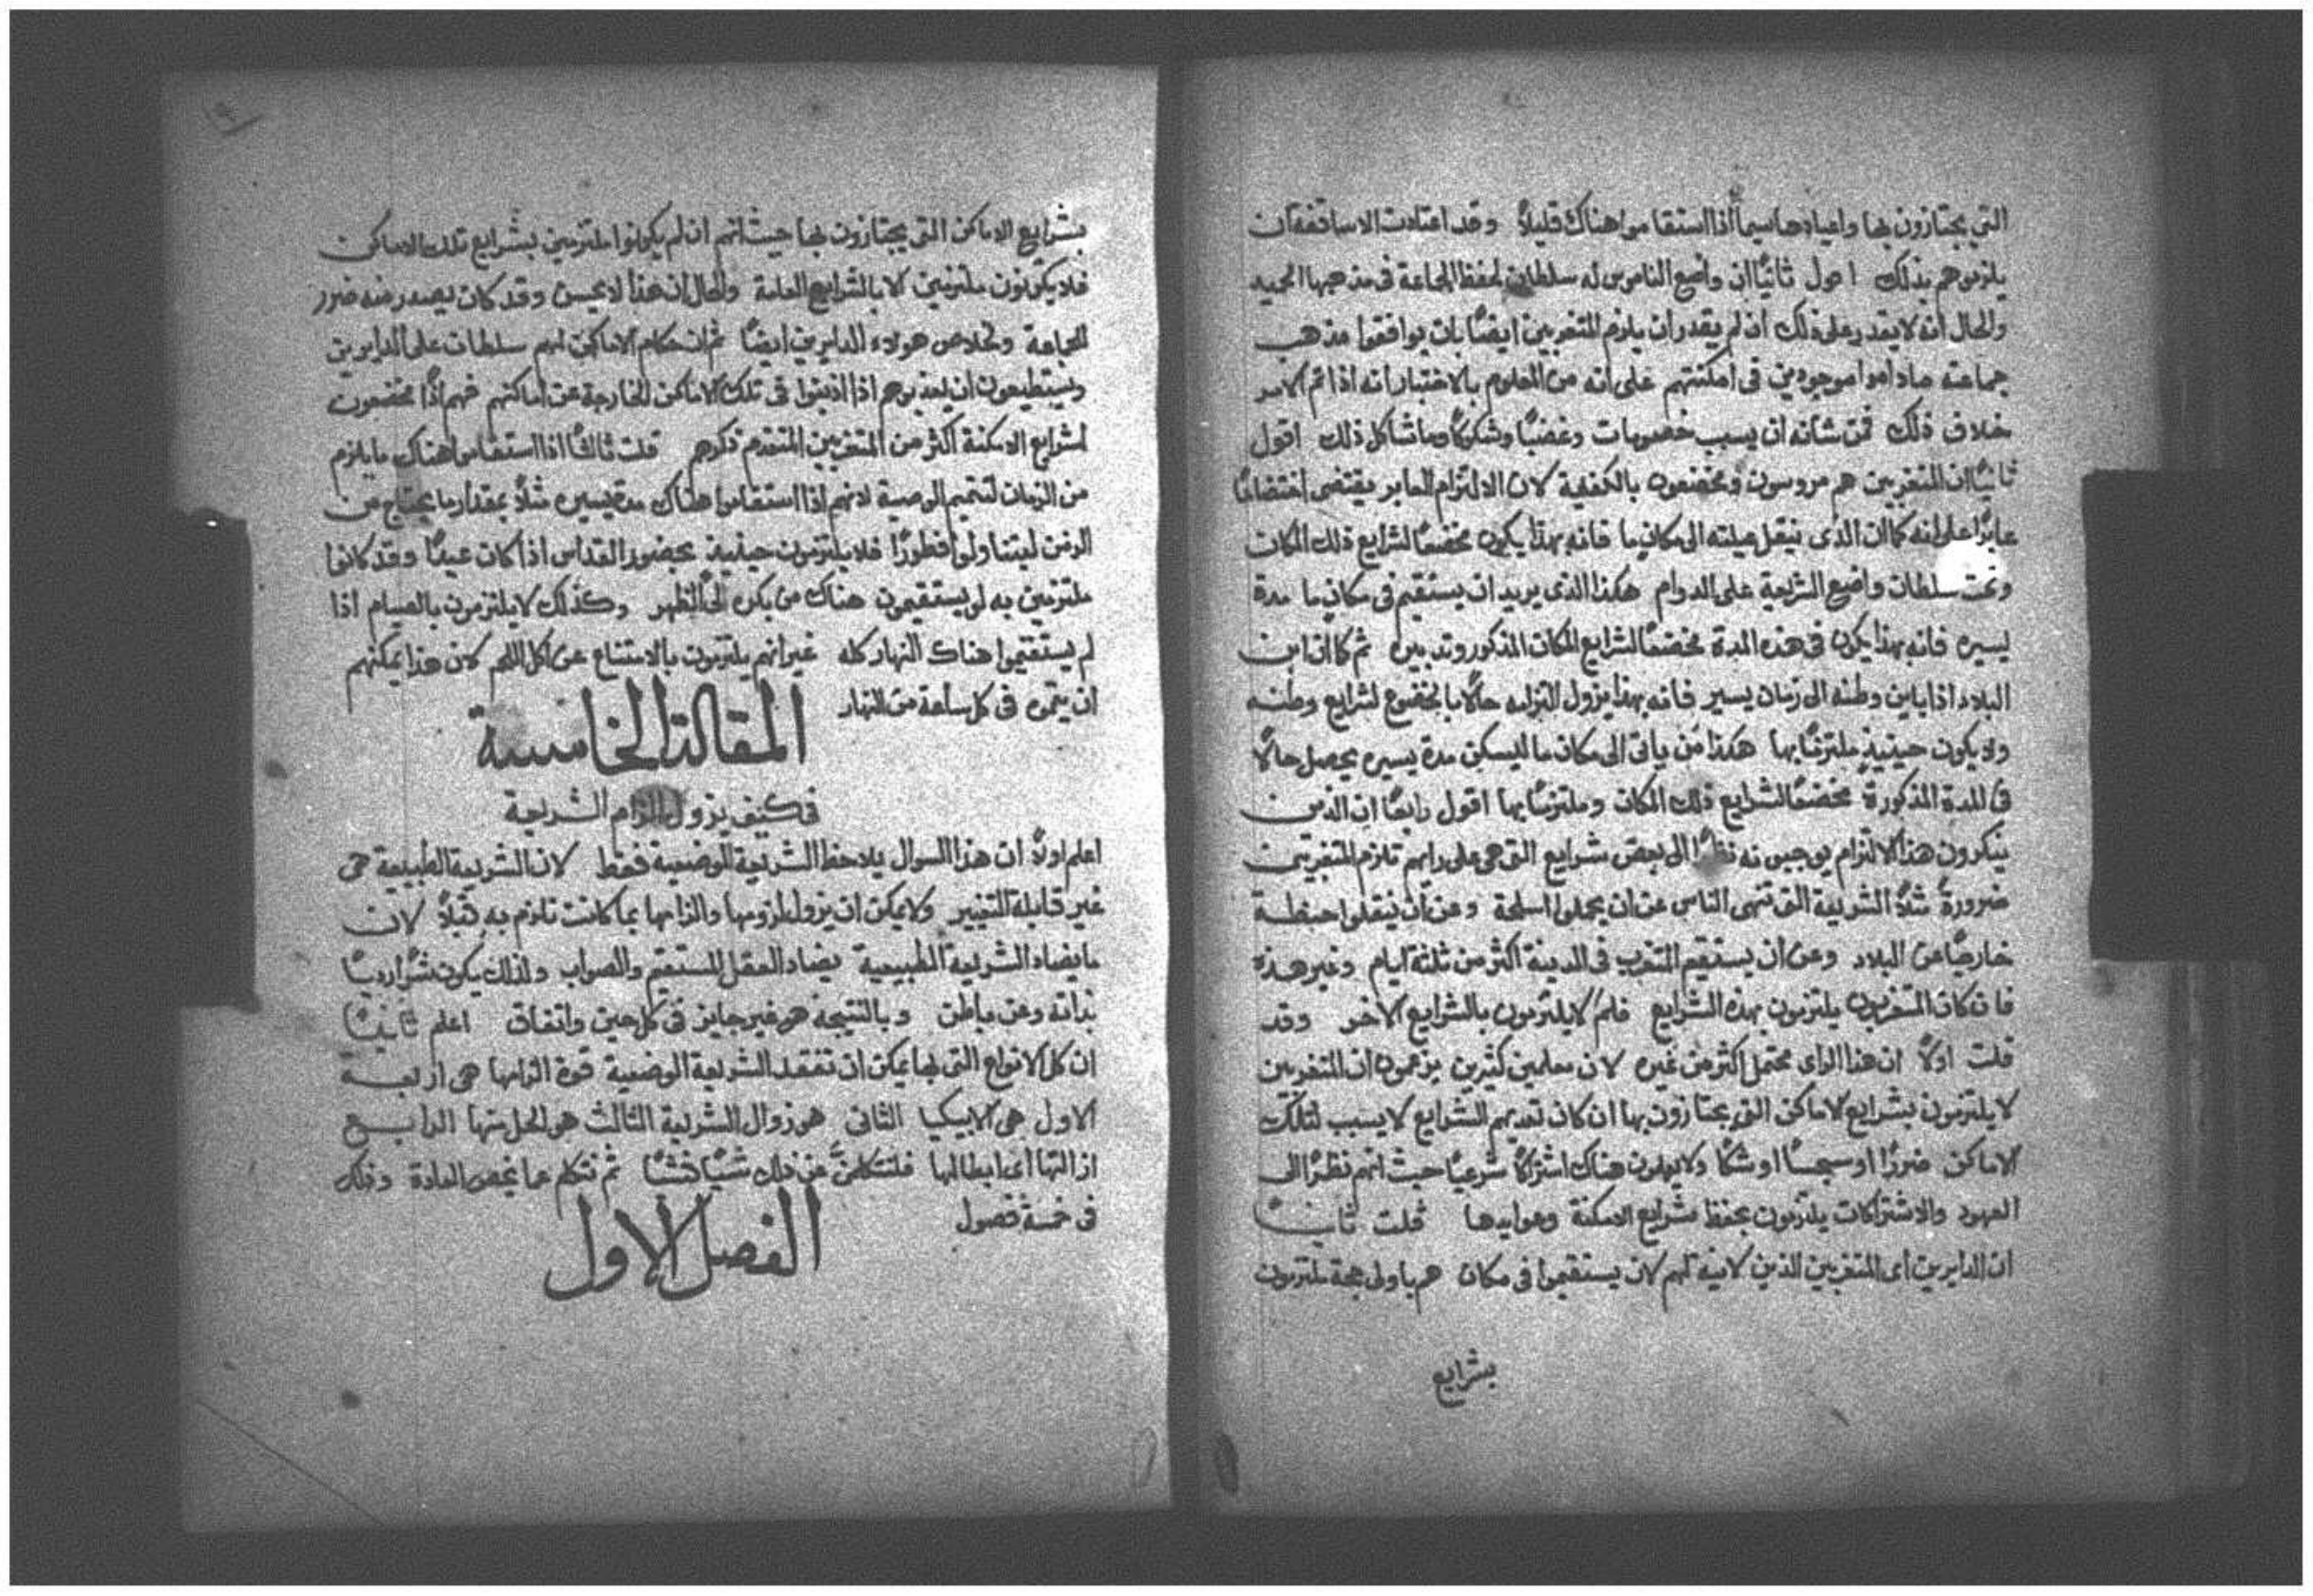 التي يجتازون بها واعيادها سيما اذا استقاموا هناك قليلاً وقد اعتادت الاساقفة ان
يلزموهم بذلك اقول ثانيًا ان واضع الناموس له سلطان لحفظ الجماعة في مذهبها الحميد
والحال انه لا يقدر على ذلك ان لم يقدر ان يلزم المتغربين ايضًا بان يوافقوا مذهب
جماعته ما داموا موجودين في امكنتهم على انه من المعلوم بالاختبار انه اذا تم الامر
بخلاف ذلك فمن شانه ان يسبب خصومات وغضبًا وشكوكًا وما شاكل ذلك اقول
ثانيًا ان المتغربين هم مروسون ومخضعون بالكفاية لان الالتزام العابر يقتضي اختضاعًا
عابرًا على انه كما ان الذي ينقل عيلته الى مكانٍ ما فانه بهذا يكون مخضعًا لشرايع ذلك المكان
وتحت سلطان واضع الشريعة على الدوام هكذا الذي يريد ان يستقيم في مكانٍ ما مدة
يسيره فانه بهذا يكون في هذه المدة مخضعًا لشرايع المكان المذكور وتدبيره ثم كما ان ابن
البلاد اذا باين وطنه الى زمان يسير فانه بهذا يزول التزامه حالاً بالخضوع لشرايع وطنه
ولا يكون حينيذٍ ملتزمًا بها هكذا من ياتي الى مكان ما ليسكن مدة يسيره يحصل حالاً
في المدة المذكورة مخضعًا لشرايع ذلك المكان وملتزمًا بها اقول رابعًا ان الذين
ينكرون هذا الالتزام يوجبونه نظرًا الى بعض شرايع التي هي على رايهم تلزم المتغربين
ضرورةً مثلاً الشريعة التي تنهى الناس عن ان يحملوا اسلحة وعن ان ينقلوا حنطة
خارجًا عن البلاد وعن ان يستقيم المتغرب في المدينة اكثر من ثلثة ايام وغير هذه
فان كان المتغربون يلتزمون بهذه الشرايع فلمَ لا يلتزمون بالشرايع الاخر وقد
قلت اولاً ان هذا الراي محتمل اكثر من غيره لان معلمين كثيرين يزعمون ان المتغربين
لا يلتزمون بشرايع الاماكن التي يجتازون بها ان كان تعديهم الشرايع لا يسبب لتلك
الاماكن ضررًا او سجسًا او شكًا ولا يهملون هناك اشتراكًا شرعيًا حيث انهم نظرًا الى
العهود والاشتراكات يلتزمون بحفظ شرايع الامكنة وعوايدها قلت ثانيًا
ان الدايرين اي المتغربين الذين لا نية لهم لان يستقيموا في مكان هم باولى حجة ملتزمون
بشرايع
بشرايع الاماكن التي يجتازون بها حيث انهم ان لم يكونوا ملتزمين بشرايع تلك الاماكن
فلا يكونون ملتزمين الا بالشرايع العامة والحال ان هذا لا يحسن وقد كان يصدر منه ضرر
للجماعة ولخلاص هولاء الدايرين ايضًا ثم ان حكام الاماكن لهم سلطان على الدايرين
ويستطيعون ان يعذبوهم اذا اذنبوا في تلك الاماكن الخارجة عن اماكنهم فهم اذًا مخضعون
لشرايع الامكنة اكثر من المتغربين المتقدم ذكرهم قلت ثالثًا اذا استقاموا هناك ما يلزم
من الزمان لتتميم الوصية لانهم اذا استقاموا هناك مدة يسيره مثلاً بمقدار ما يحتاج من
الزمن ليتناولوا فطورًا فلا يلتزمون حينيذٍ بحضور القداس اذا كان عيدًا وقد كانوا
ملتزمين به لو يستقيمون هناك من بكره الى الظهر وكذلك لا يلتزمون بالصيام اذا
لم يستقيموا هناك النهار كله غير انهم يلتزمون بالامتناع عن اكل اللحم لان هذا يمكنهم
ان يتموه في كل ساعة من النهار
المقالة الخامسة
في كيف يزول الزام الشريعة
اعلم اولاً ان هذا السوال يلاحظ الشريعة الوضعية فقط لان الشريعة الطبيعة هي
غير قابلة التغيير ولا يمكن ان يزول لزومها والزامها بما كانت تلزم به قبلاً لان
ما يضاد الشريعة الطبيعية يضاد العقل المستقيم والصواب ولذلك يكون شرًا رديًا
بذاته ومن باطن وبالنتيجه هو غير جايز في كل حين واتفاق اعلم ثانيًا
ان كل الانواع التي بها يمكن ان تفقد الشريعة الوضعية قوة الزامها هي اربعة
الاول هي الابيكيا الثاني هو زوال الشريعة الثالث هو الحل منها الرابع
ازالتها اي ابطالها فلنتكلمنَّ عن ذلك شيًا فشيًا ثم نتكلم عما يخص العادة وذلك
في خمسة فصول
الفصل الاول